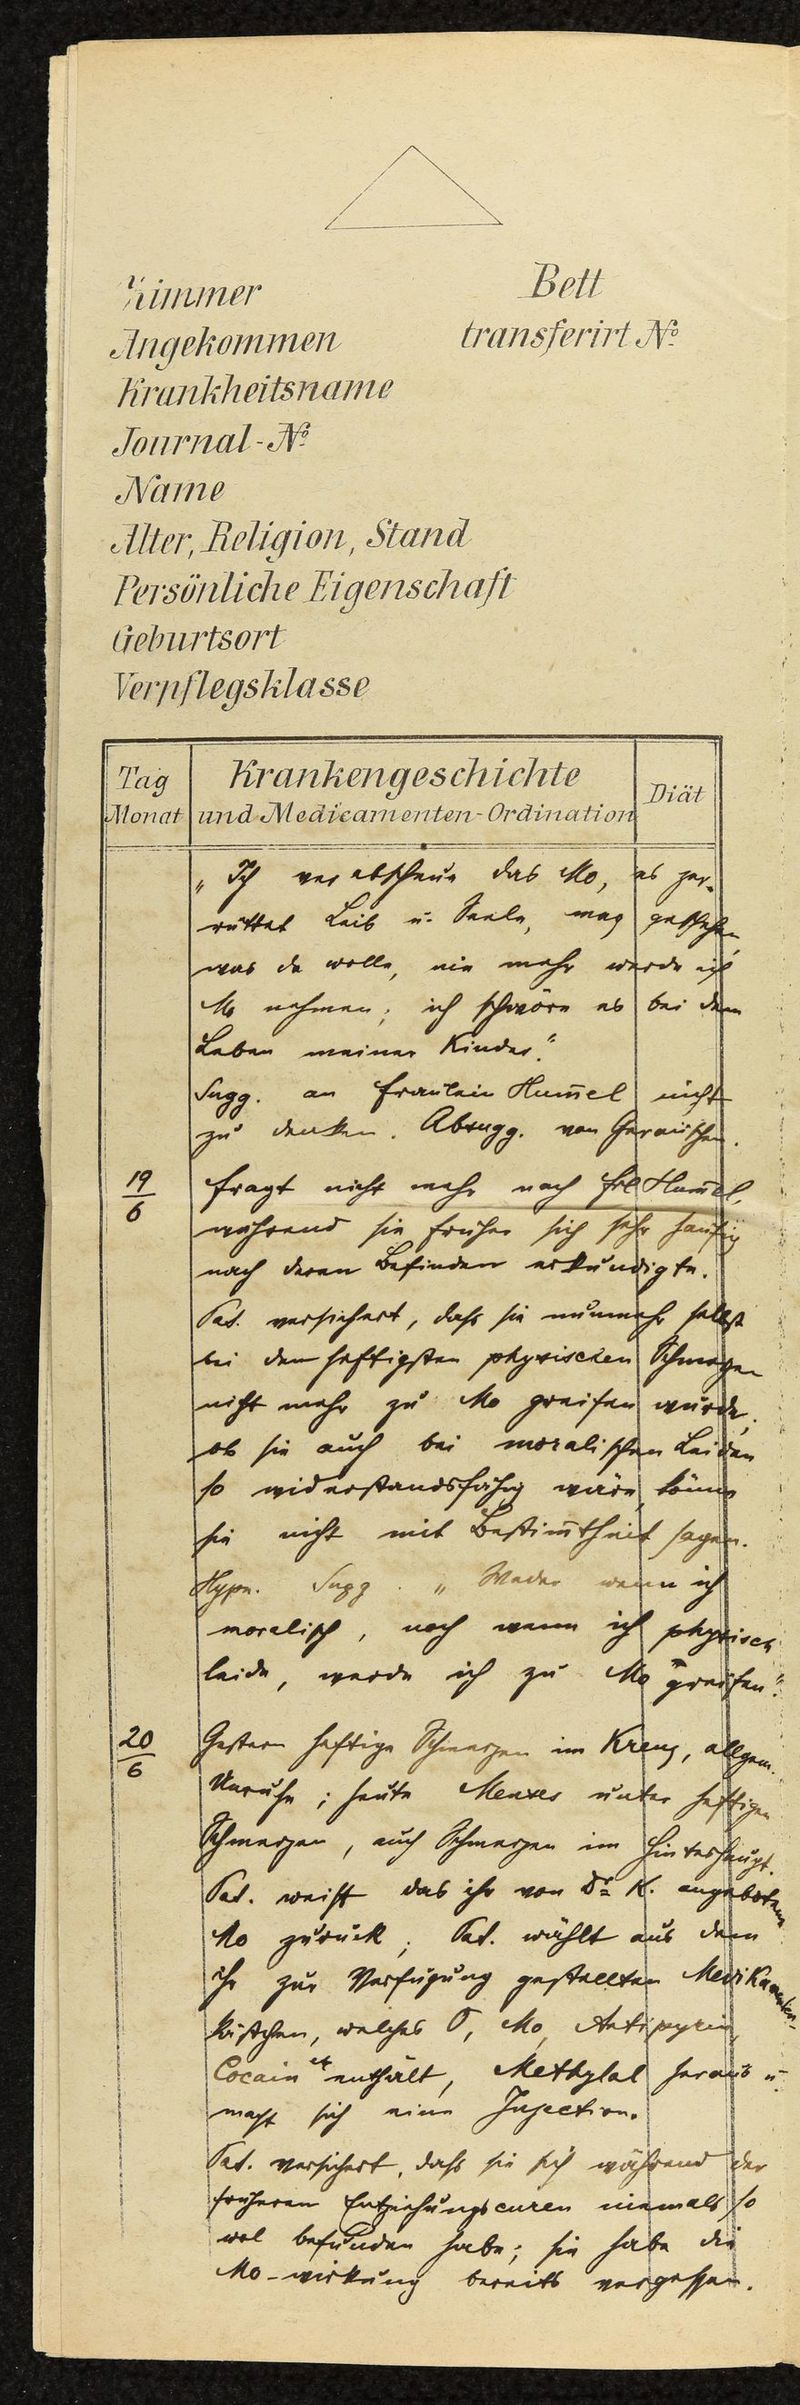 Zimmer Bett
Angekommen transferirt No.
Krankheitsname
Journal-No.
Name
Alter, Religion, Stand
Persönliche Eigenschaft
Geburtsort
Verpflegsklasse
Tag Monat Krankengeschichte und Medicamenten-Ordination Diät
„Ich verabscheue das Mo, es zer-
rüttet Leib u. Seele, mag geschehen,
was da wolle, nie mehr werde ich
Mo nehmen; ich schwöre es bei dem
Leben meiner Kinder."
Sugg. an Fräulein Hum̅el nicht
zu denken. Absugg. von Geräuschen.
19/6 Fragt nicht mehr nach Frl Hum̅el,
während sie früher sich sehr häufig
nach deren Befinden erkundigte.
Pat. versichert, dass sie nunmehr selbst
bei den heftigsten physischen Schmerzen
nicht mehr zu Mo greifen würde;
ob sie auch bei moralischen Leiden
so widerstandsfähig wäre, könne
sie nicht mit Bestim̅theit sagen.
Hypn. Sugg. „Weder wenn ich
moralisch, noch wenn ich physisch
leide, werde ich zu Mo greifen."
20/6 Gestern heftige Schmerzen im Kreuz, allgem.
Unruhe; heute Menses unter heftigen
Schmerzen, auch Schmerzen im Hinterhaupt.
Pat. weist das ihr von Dr. K. angebotene
Mo zurück; Pat. wählt aus dem
ihr zur Verfügung gestellten Medikamenten-
kästchen, welches O, Mo, Antipyrin,
Cocain etc enthält, Methylal heraus u.
macht sich eine Injection.
Pat. versichert, dass sie sich während der
früheren Entziehungscuren niemals so
wol befunden habe; sie habe die
Mo-wirkung bereits vergessen.